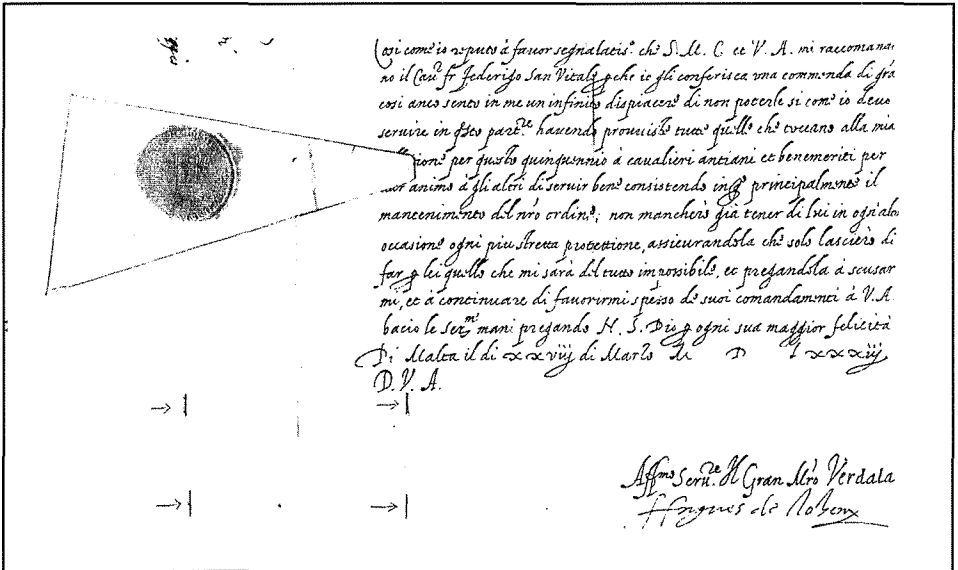 Cosi come io reputo à favor segnalatis.º che S. M. C. et V. A. mi raccomana
no il Cau.r fr Federigo San Vitale p che io gli conferisca una commenda di gra
cosi anco sento in me un infinito dispiacere di non poterle si come io devo
servire in qsto part.re havendo provviste tutte quelle che toccano alla mia
per questo quinquennio à cavalieri antiani et benemeriti per
animo à gli altri di servir bene consistendo in qsto principalmente il
mantenimento del nrõ ordine; non mancherò già tener di lui in ogn'altra
occasione ogni piu stretta protettione, assicurandola che solo lascierò di
far p lei quello che mi sarà del tutto impossibile, et pregandola à scusar
mi, et à continuare di favorirmi spesso de suoi comandamenti à V. A.
bacio le Ser.me mani pregando N. S. Dio p ogni sua maggior felicità
Di Malta il di xxviij di Marzo M D lxxxiij
D. V. A.
Aff.mo Seru.re Il Gran Mrõ Verdala